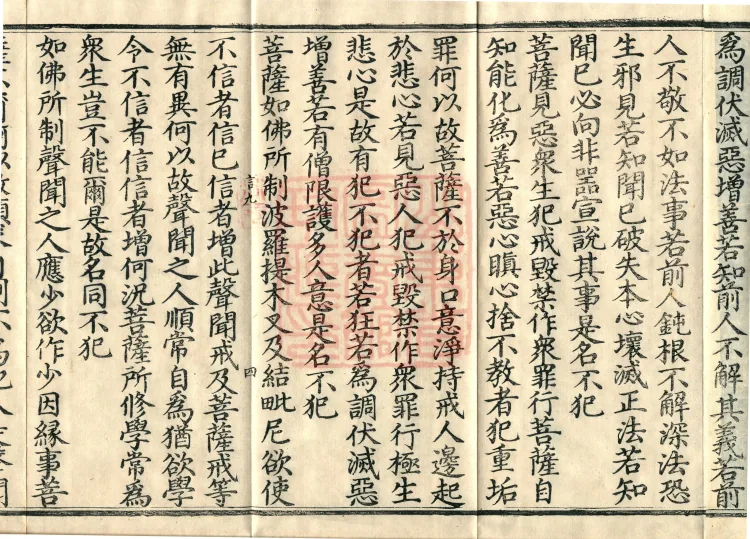 為調伏滅惡增善若知前人不解其義若前
人不敬不如法事若前人鈍根不解深法恐
生邪見若知聞已破失本心壞滅正法若知
聞已必向非器宣說其事是名不犯
菩薩見惡衆生犯戒毀禁作衆罪行菩薩自
知能化爲善若惡心瞋心捨不教者犯重垢
罪何以故菩薩不於身口意淨持戒人邊起
於悲心若見惡人犯戒毀禁作衆罪行極生
悲心是故有犯不犯者若狂若爲調伏滅惡
增善若有僧限護多人意是名不犯
菩薩如佛所制波羅提木叉及結毗尼欲使
言九
四
不信者信已信者增此聲聞戒及菩薩戒等
無有異何以故聲聞之人順常自爲猶欲學
令不信者信信者增何況菩薩所修學常爲
衆生豈不能爾是故名同不犯
如佛所制聲聞之人應少欲作少因緣事善